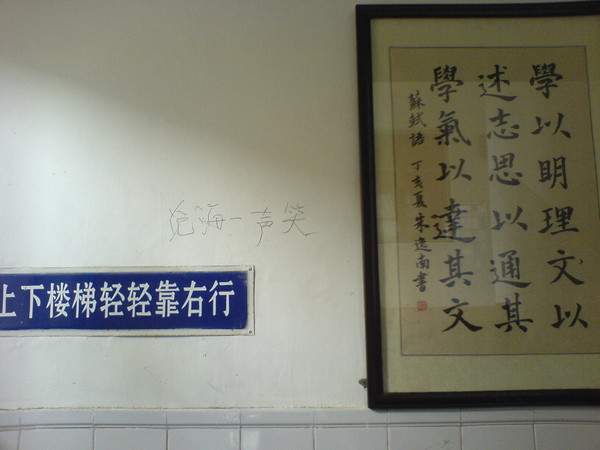 沧海一声笑
上下楼梯轻轻靠右行
學以明理文以
述志思以通其
學氣以達其文
蘇軾語 丁亥夏朱逸南書